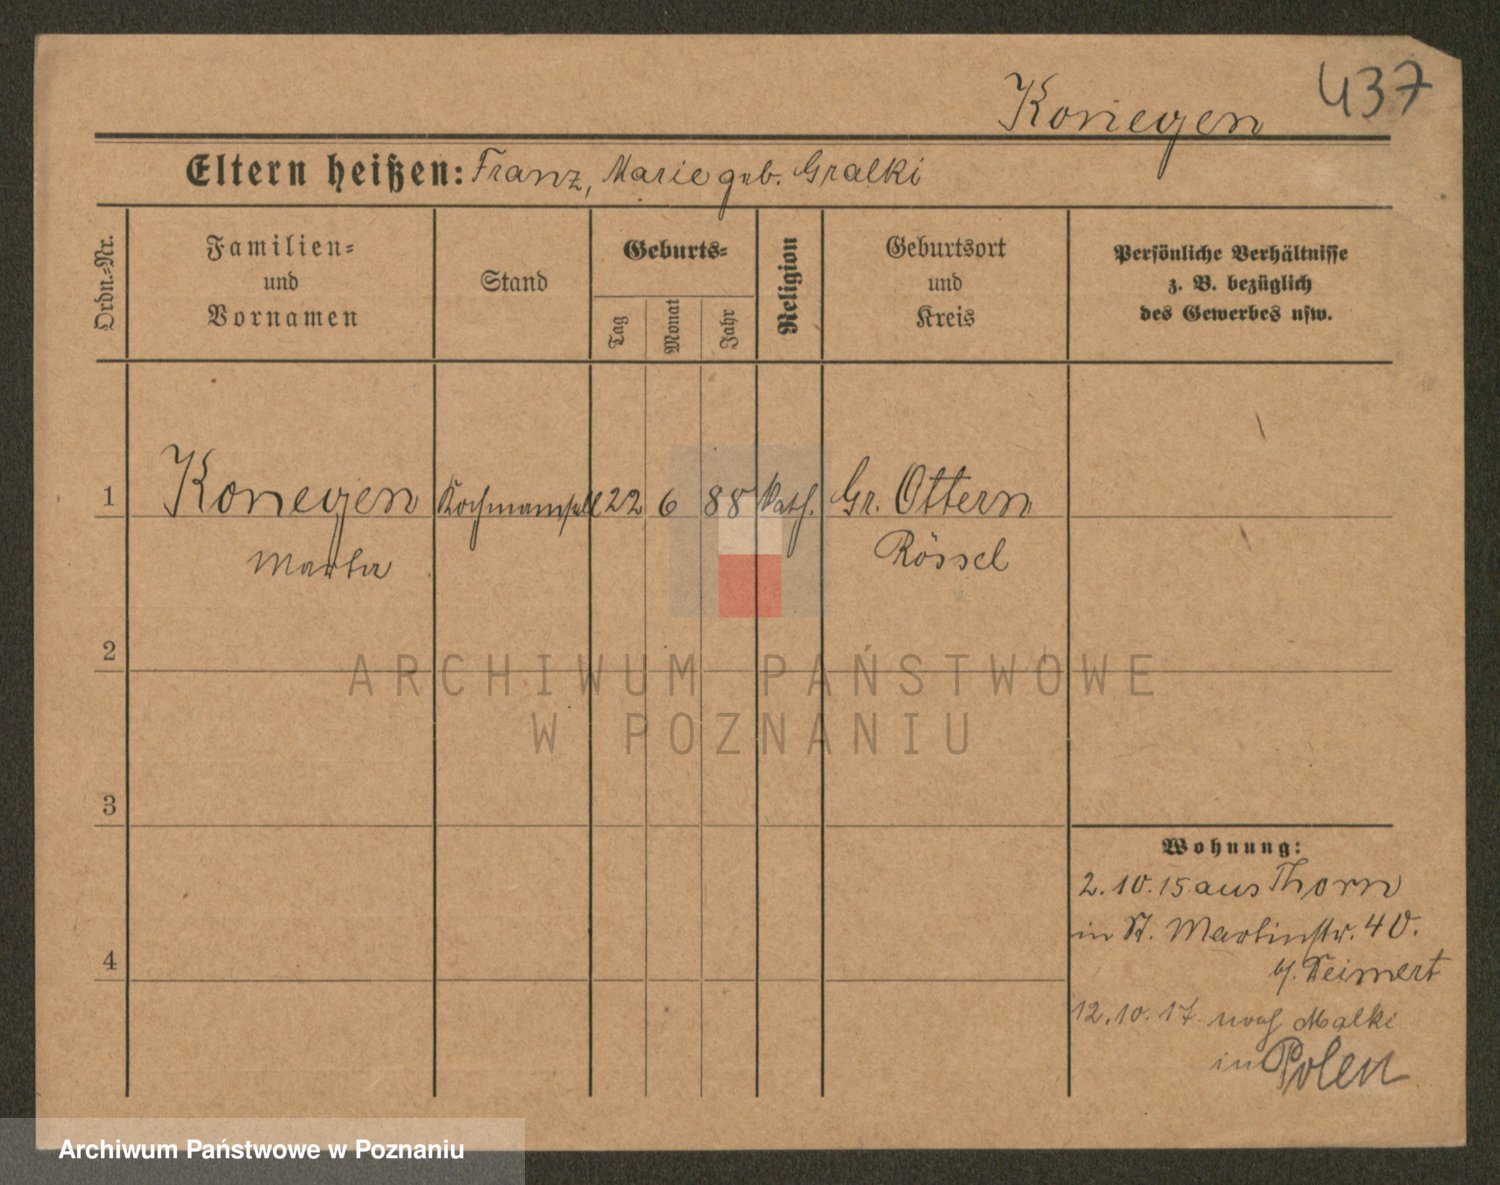 437
Konegen
Eltern heißen: Franz, Marie geb. Gralki
Ordn.-Nr.
Familien-
und
Vornamen
Stand
Geburts-
Tag
Monat
Jahr
Religion
Geburtsort
und
Kreis
Persönliche Verhältnisse
z. B. bezüglich
des Gewerbes usw.
1 Konegen Kochmamsell 22 6 88 kath. Gr. Ottern
Marta Rössel
2
3
4
Wohnung:
2.10.15 aus Thorn
in St. Martinstr. 40.
b/. Reimert
12.10.17 nach Malki
in Polen
ARCHIWUM PAŃSTWOWE
W POZNANIU
Archiwum Państwowe w Poznaniu